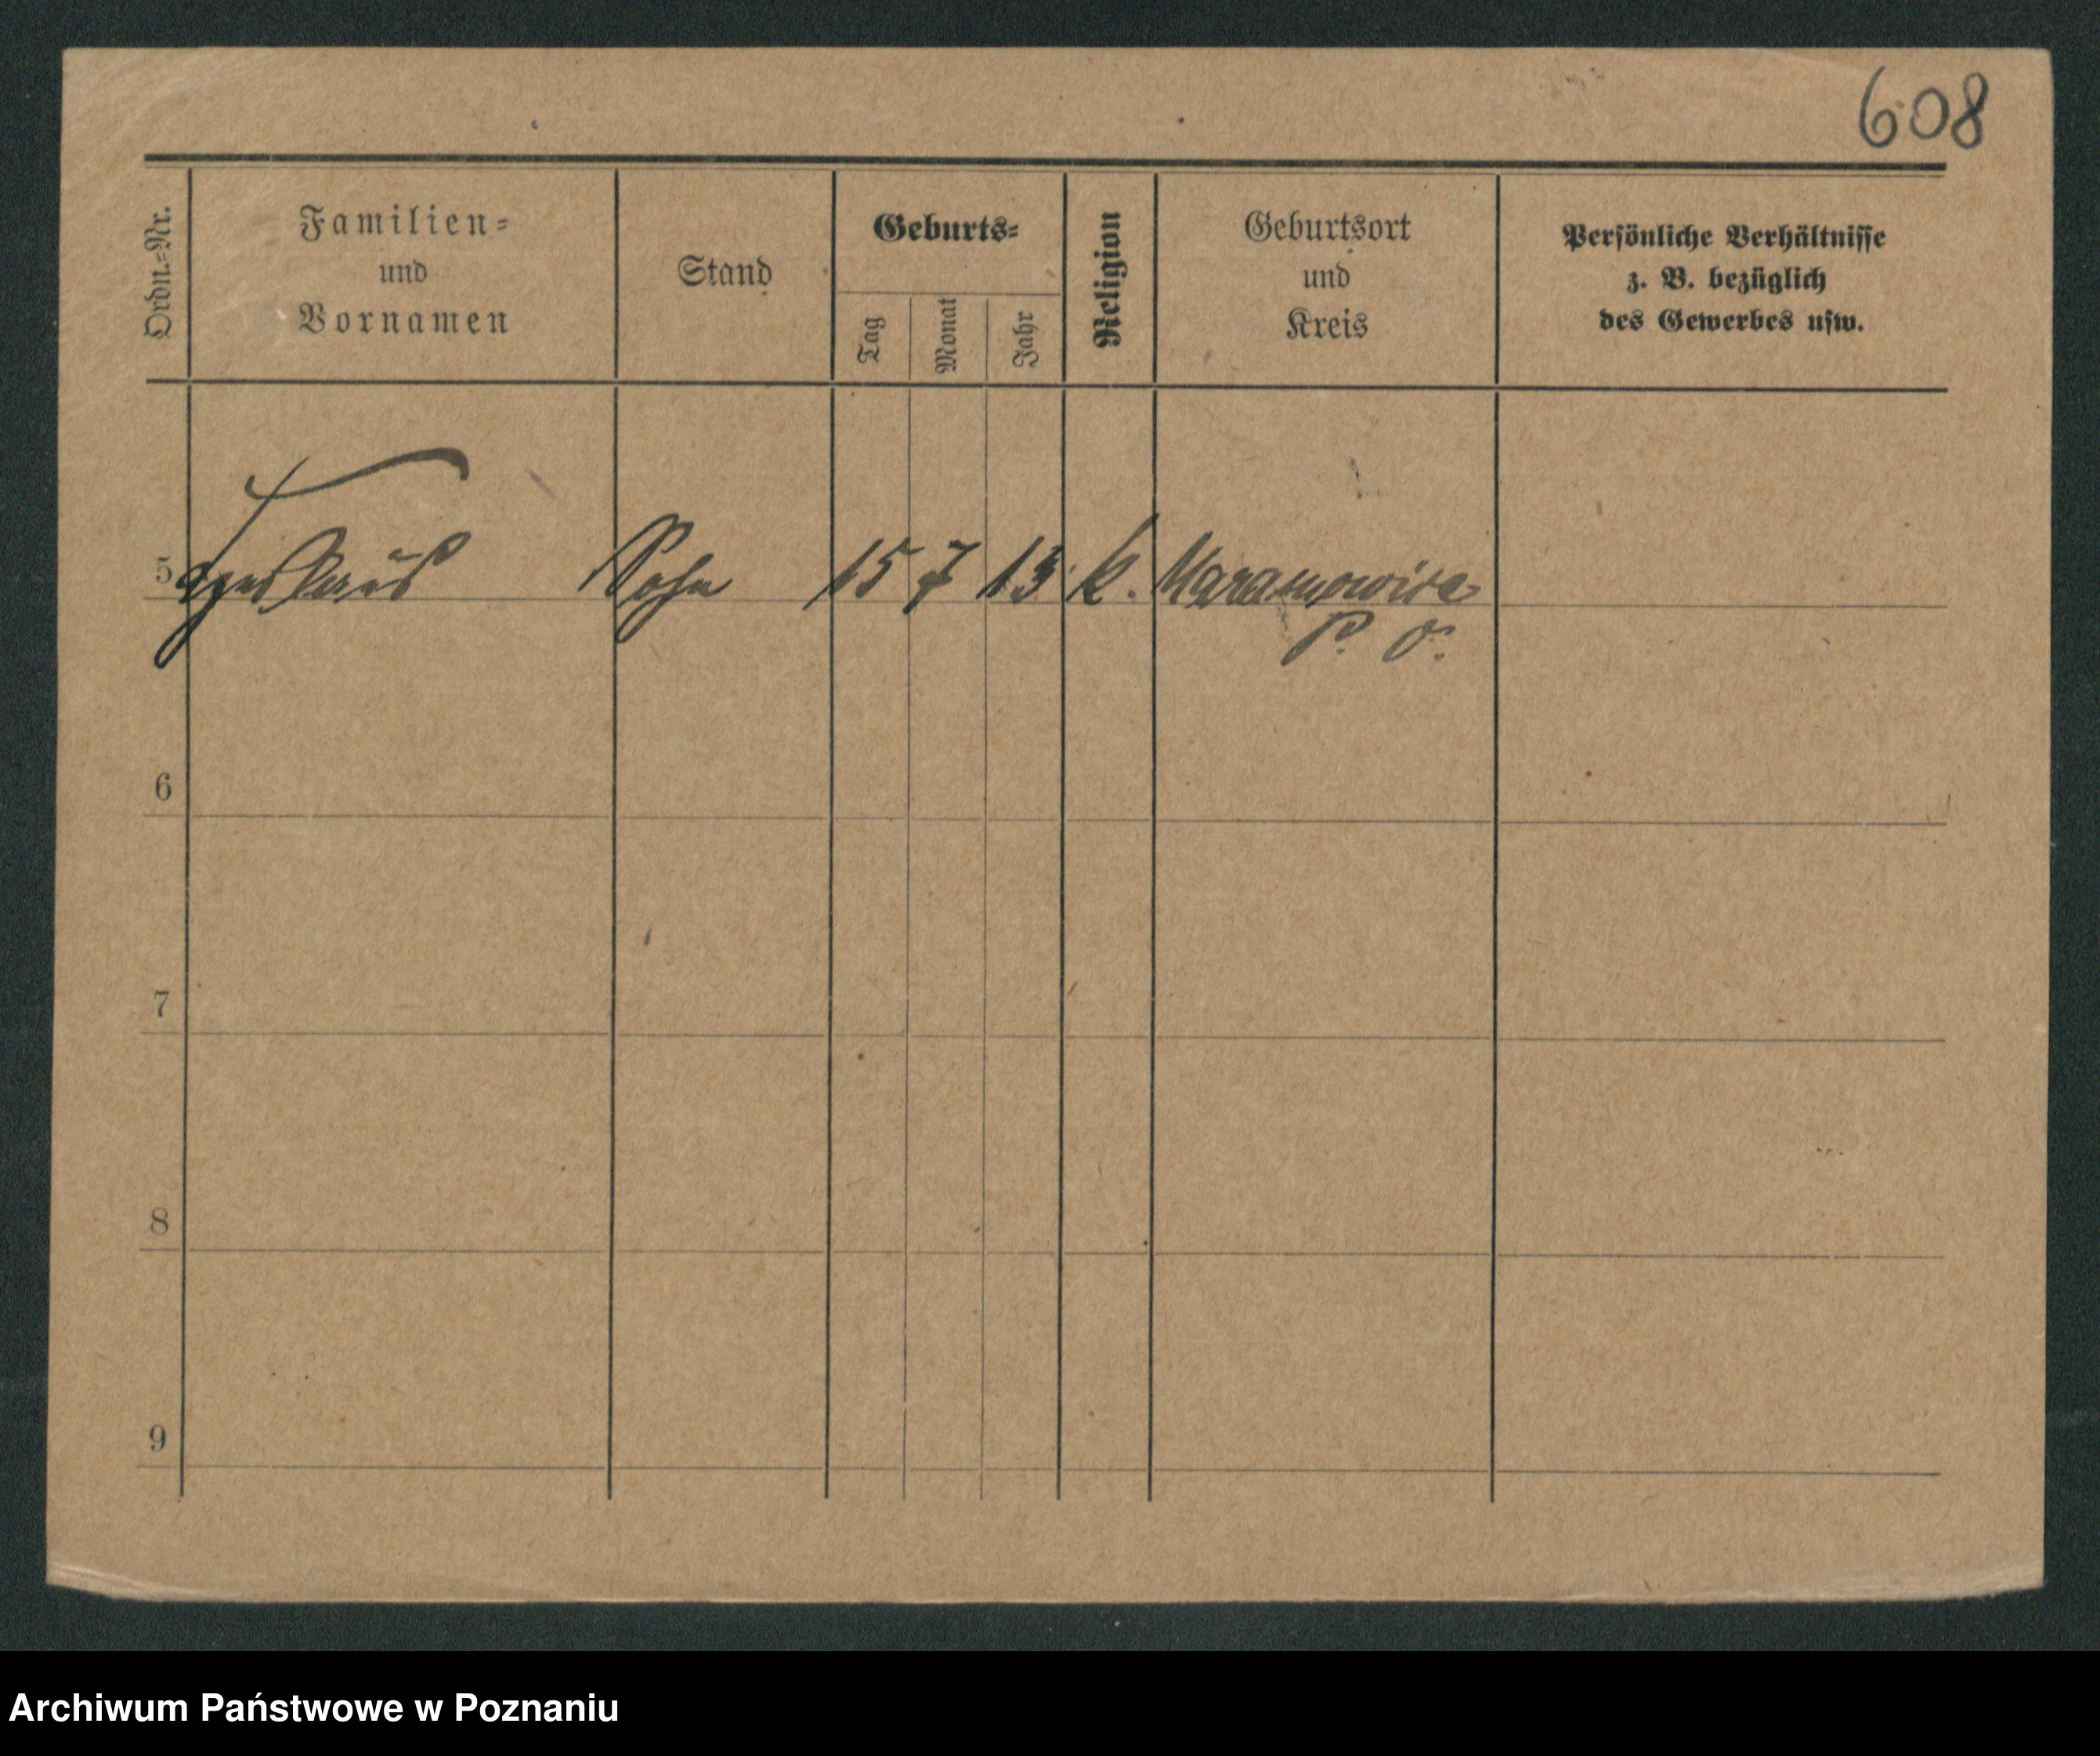 608
Ordn.-Nr.
Familien-
und
Vornamen
Stand
Geburts-
Tag
Monat
Jahr
Religion
Geburtsort
und
Kreis
Persönliche Verhältnisse
z. B. bezüglich
des Gewerbes usw.
5 Sohn 15 7 13 k.
P. O.
6
7
8
9
Archiwum Państwowe w Poznaniu